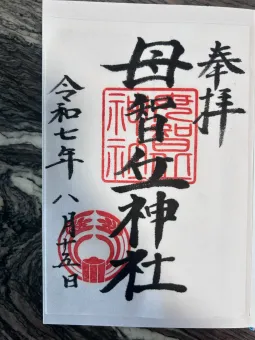 奉拝
母智丘神社
令和七年 八月十五日
母智丘
神社